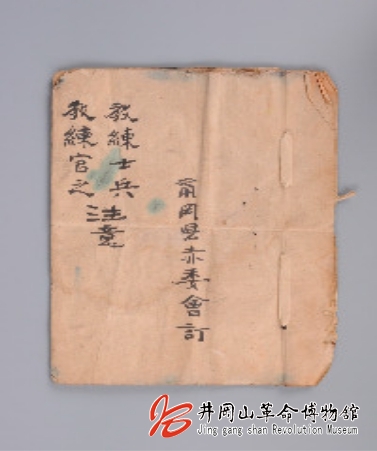 甯岡县赤委會訂
教練士兵
教練官之
注意
井岡山革命博物館
Jing gang shan Revolution Museum